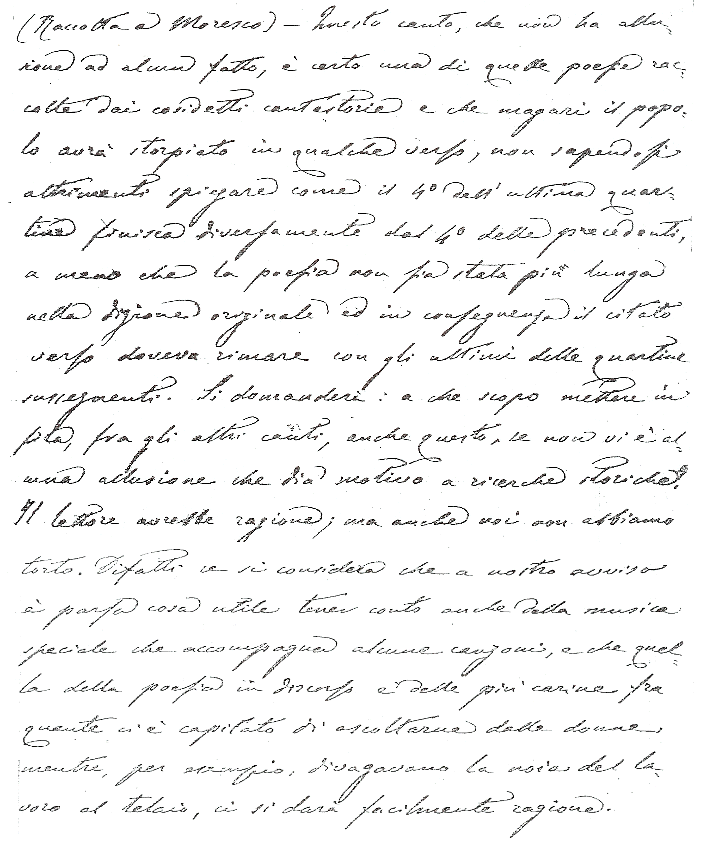 (Raccolta a Moresco) – Questo canto, che non ha allu-
sione ad alcun fatto, è certo una di quelle poesie rac-
colte dai cosidetti cantastorie e che magari il popo-
lo avrà storpiato in qualche verso, non sapendosi
altrimenti spiegare come il 4º dell'ultima quar-
tina finisca diversamente dal 4º delle precedenti,
a meno che la poesia non sia stata più lunga
nella dizione originale ed in conseguenza il citato
verso doveva rimare con gli ultimi delle quartine
susseguenti. Si domanderà: a che scopo mettere in
fila, fra gli altri canti, anche questo, se non vi è al-
cuna allusione che dia motivo a ricerche storiche?
Il lettore avrebbe ragione; ma anche noi non abbiamo
torto. Difatti se si considera che a nostro avviso
è parsa cosa utile tener conto anche della musica
speciale che accompagna alcune canzoni, e che quel-
la della poesia in discorso è delle più carine fra
quante ci è capitato di ascoltarne dalle donne,
mentre, per esempio, divagavano la noia del la-
voro al telaio, ci si darà facilmente ragione.